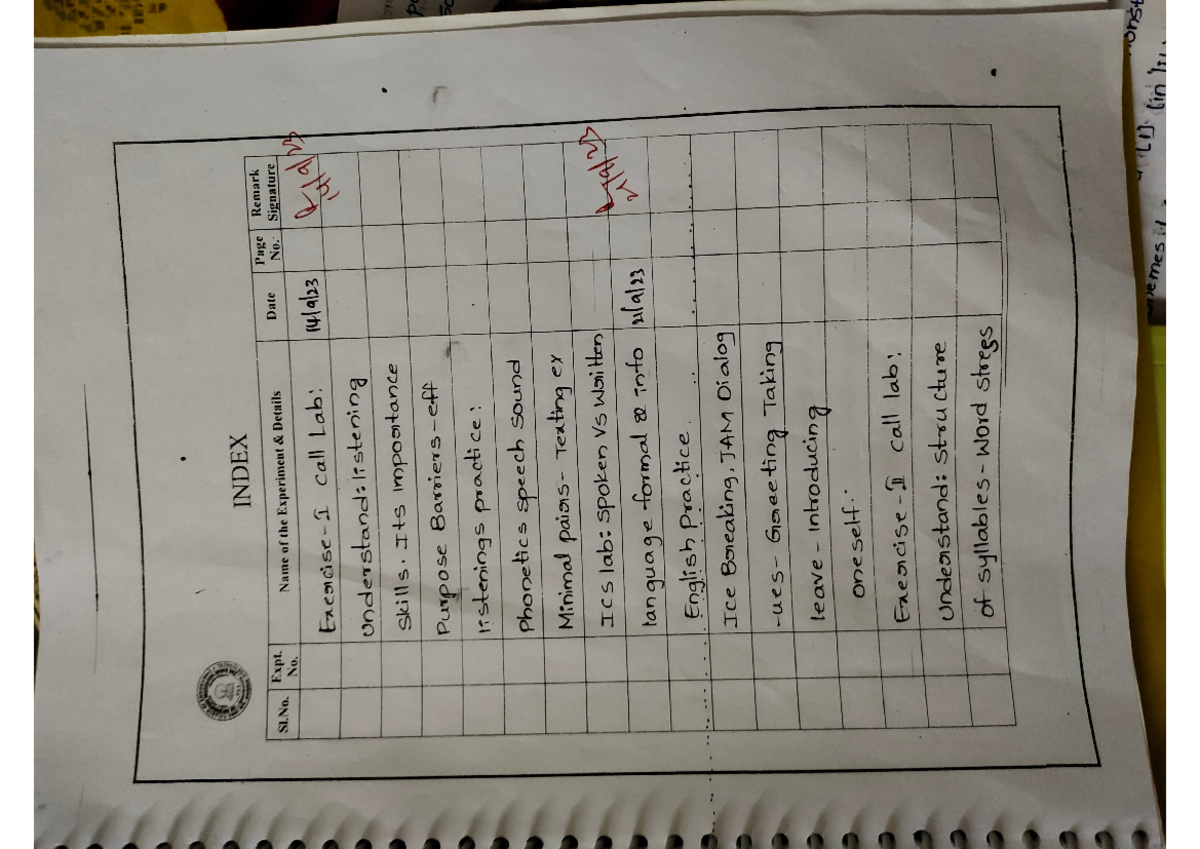 INDEX
Sl.No. Expt. No. Name of the Experiment & Details Date Page No. Remark Signature
Exercise-I Call Lab: 14/9/23
Understand: listening
Skills. Its Importance
Purpose Barriers-eff
listenings practice:
Phonetics speech sound
Minimal pairs- Texting ex
Ics lab: spoken Vs Written
language formal & info 21/9/23
English Practice.
Ice Breaking, JAM Dialog
-ues- Greeting Taking
leave- Introducing
oneself.
Exercise-II call lab:
Understand: Structure
of syllables-Word stress